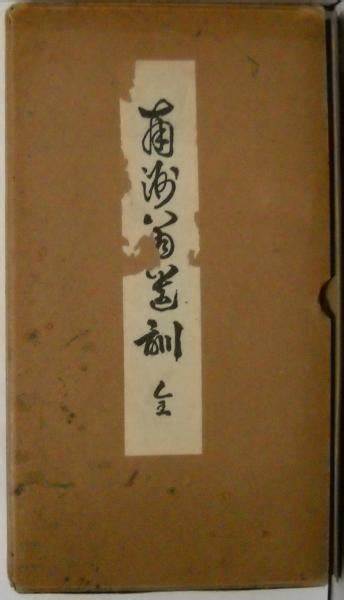 南洲翁遺訓 全